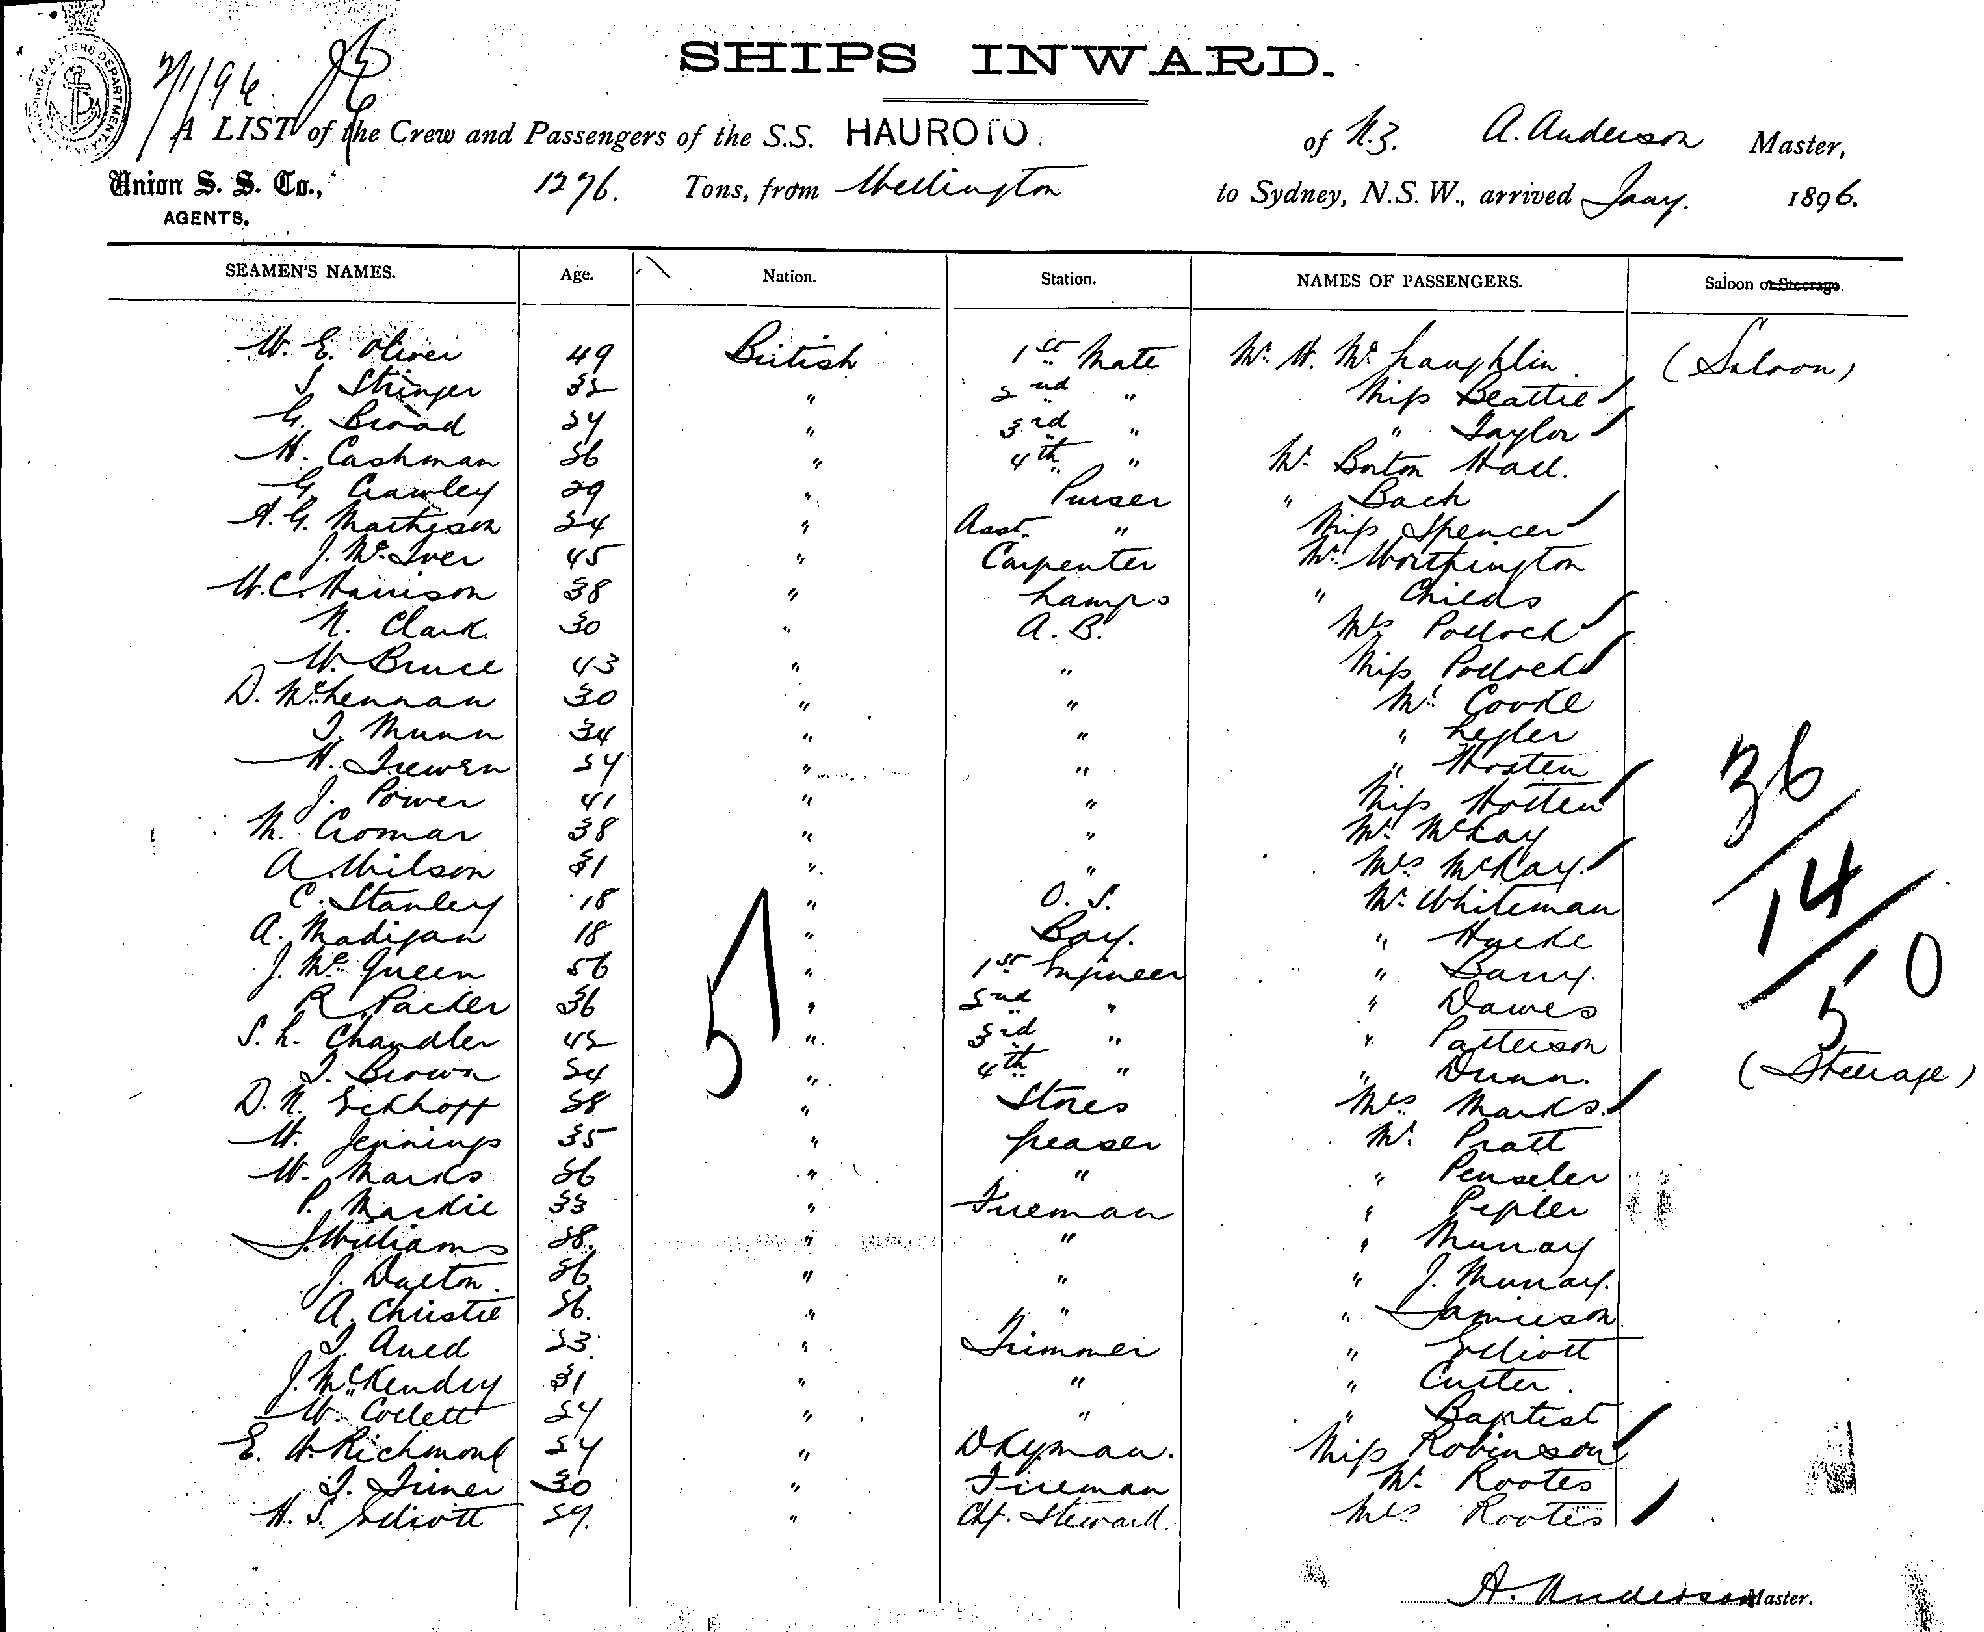 2/1/96
SHIPS INWARD.
A LIST of the Crew and Passengers of the S.S. HAUROTO. of N.Z. A. Anderson Master,
Union S. S. Co., AGENTS. 1276. Tons, from Wellington to Sydney, N.S.W., arrived Jany. 1896.
SEAMEN'S NAMES. Age. Nation. Station. NAMES OF PASSENGERS. Saloon or Steerage.
W. E. Oliver 49 British 1st Mate Mr. H. Mc Laughlin. (Saloon)
S. Stringer 32 " 2nd " Miss Beattie
G. Broad 24 " 3rd " " Taylor
H. Cashman 26 " 4th " Mr. Borton Hall.
G. Crawley 29 " Purser " Bach
A. G. Mathison 24 " Asst. " Miss Spencer
J. McIver 45 " Carpenter Mr. Worthington
W. C. Harrison 38 " Lamps " Childs
N. Clark. 30 " A. B. Mrs Pollock
W. Bruce 43 " " Miss Pollock
D. McLennan 30 " " Mr. Cooke
J. Munn 34 " " " Lepler
H. Trewen 24 " " "
J. Power 41 " " Miss
M. Cromar 38 " " Mr. McKay
A. Wilson 31 " " Mrs McKay.
C. Stanley 18 " O. S. Mr. Whiteman
A. Madigan 18 " Boy. "
J. McQueen 56 " 1st Engineer " Barry.
R. Packer 36 " 2nd " " Dawes
S. L. Chandler 42 " 3rd " " Patterson
J. Brown 24 " 4th " " Dunn. (Steerage)
D. N. Eickhoff 28 " Stores Mrs Marks.
W. Jennings 35 " Greaser Mr. Pratt
W. Marks 26 " " " Penseler
P. Mackie 33 " Fireman " Pepler
J. Williams 28. " " " Murray
J. Dalton. 26 " " " J. Murray.
A. Christie 26. " " " Jamieson
J. 23. " Trimmer " Elliott
J. McKendry 31 " " " Custer.
W. Collett 24 " " " Baptist
E. W. Richmond 24 " Dkyman. Miss Robinson
J. 30 " Fireman Mr. Rootes
H. S. Elliott 29. " Chf. Steward. Mrs Rootes
36
14
50
57
A. Anderson Master.